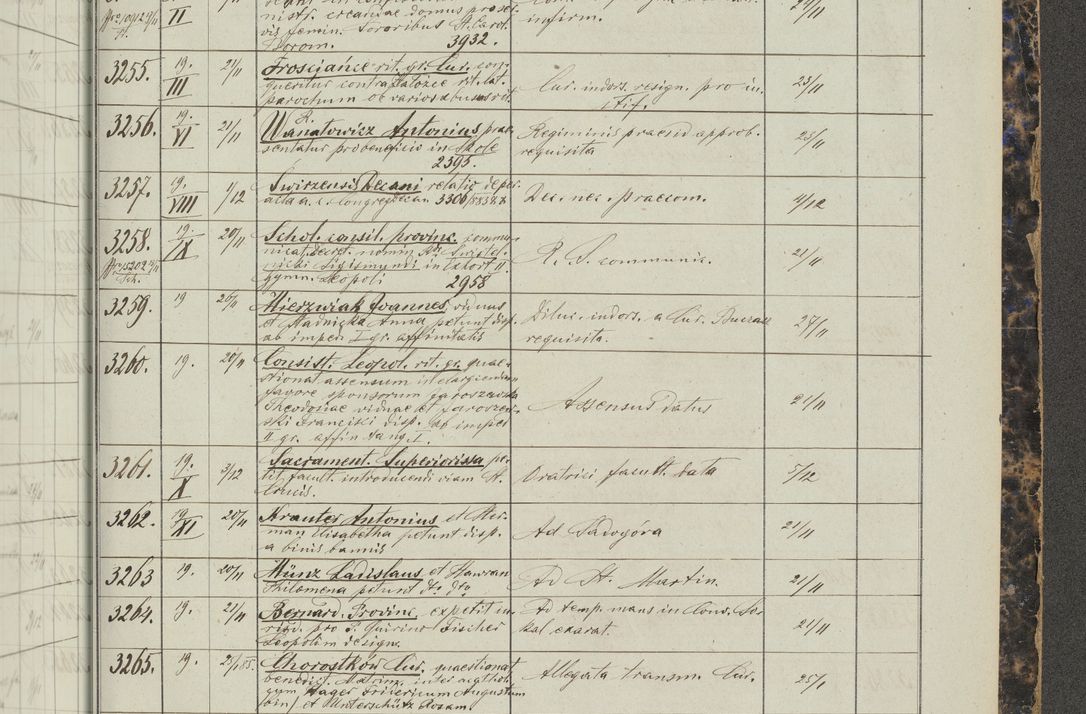 II
nistr. ecraniae domus prest.
vis femin. Sororibus St. Carol.
Borom. 3932.
infirm.
3255. 19. III 21/11 Trościańce rit. gr. Cur. con-
queritur contra Załoźce rit. lat.
parochum ob varios abusus rit.
Cur. indors. resign. pro in-
stif. 23/11
3256. 19. VI 21/11 R. Wanatowicz Antonius prae-
sentatur pro beneficio in Skole
2595.
Regiminis praesid approb.
requisita 23/11
3257. 19. VIII 1/12 Swirzensis Decani relatio de per-
acta a. c. Congreg Decan 3306/
Dec. nec. praecom. 4/12
3258. 19. IX 20/11 Schol. consil. provinc. commu-
nicat. decret. nomin. Ri
nicki Sigismundi in Exhort II
gymn. Leopoli 2958
R. S. communic. 21/11
3259. 19 26/11 Mierzwiak Joannes viduus
et Anna petunt disp.
ab imped. I gr. affinitatis
Diluc. indors. a Cur. Buczacz
requisita. 27/11
3260. 19. 20/11 Consist. Leopol. rit. gr. quae-
stionat. assensum
favore sponsorum Jaroszewska
Theodosiae viduae et Jaroszew-
ski Francisci disp. ab imped
II gr. affin tang. I.
Assensus datus 21/11
3261. 19. X 3/12 Sacrament. Superiorissa pe-
tit facult. introducendi viam St.
Crucis.
Oratrici facult. data 5/12
3262. 19 XI 20/11 Krauter Antonius et Her-
man Elisabetha petunt disp.
a binis bannis
Ad Sadogóra 21/11
3263 19. 20/11 Münz Ladislaus et Hawran
Philomena petunt dto. dto
Ad St. Martin 21/11
3264. 19. 21/11 Bernard. Provinc. expetit iu-
risd. pro P. Quirino Fischer
Leopolim design.
Ad temp. mans in Conv. So-
kal exarat. 21/11
3265. 19. 2/1 85. Chorostków Cur. quaestionat
benedict. Matrim. inter
gym Hager Augustum
et Unterschütz Rosam.
Allegata transm. Cur. 25/1